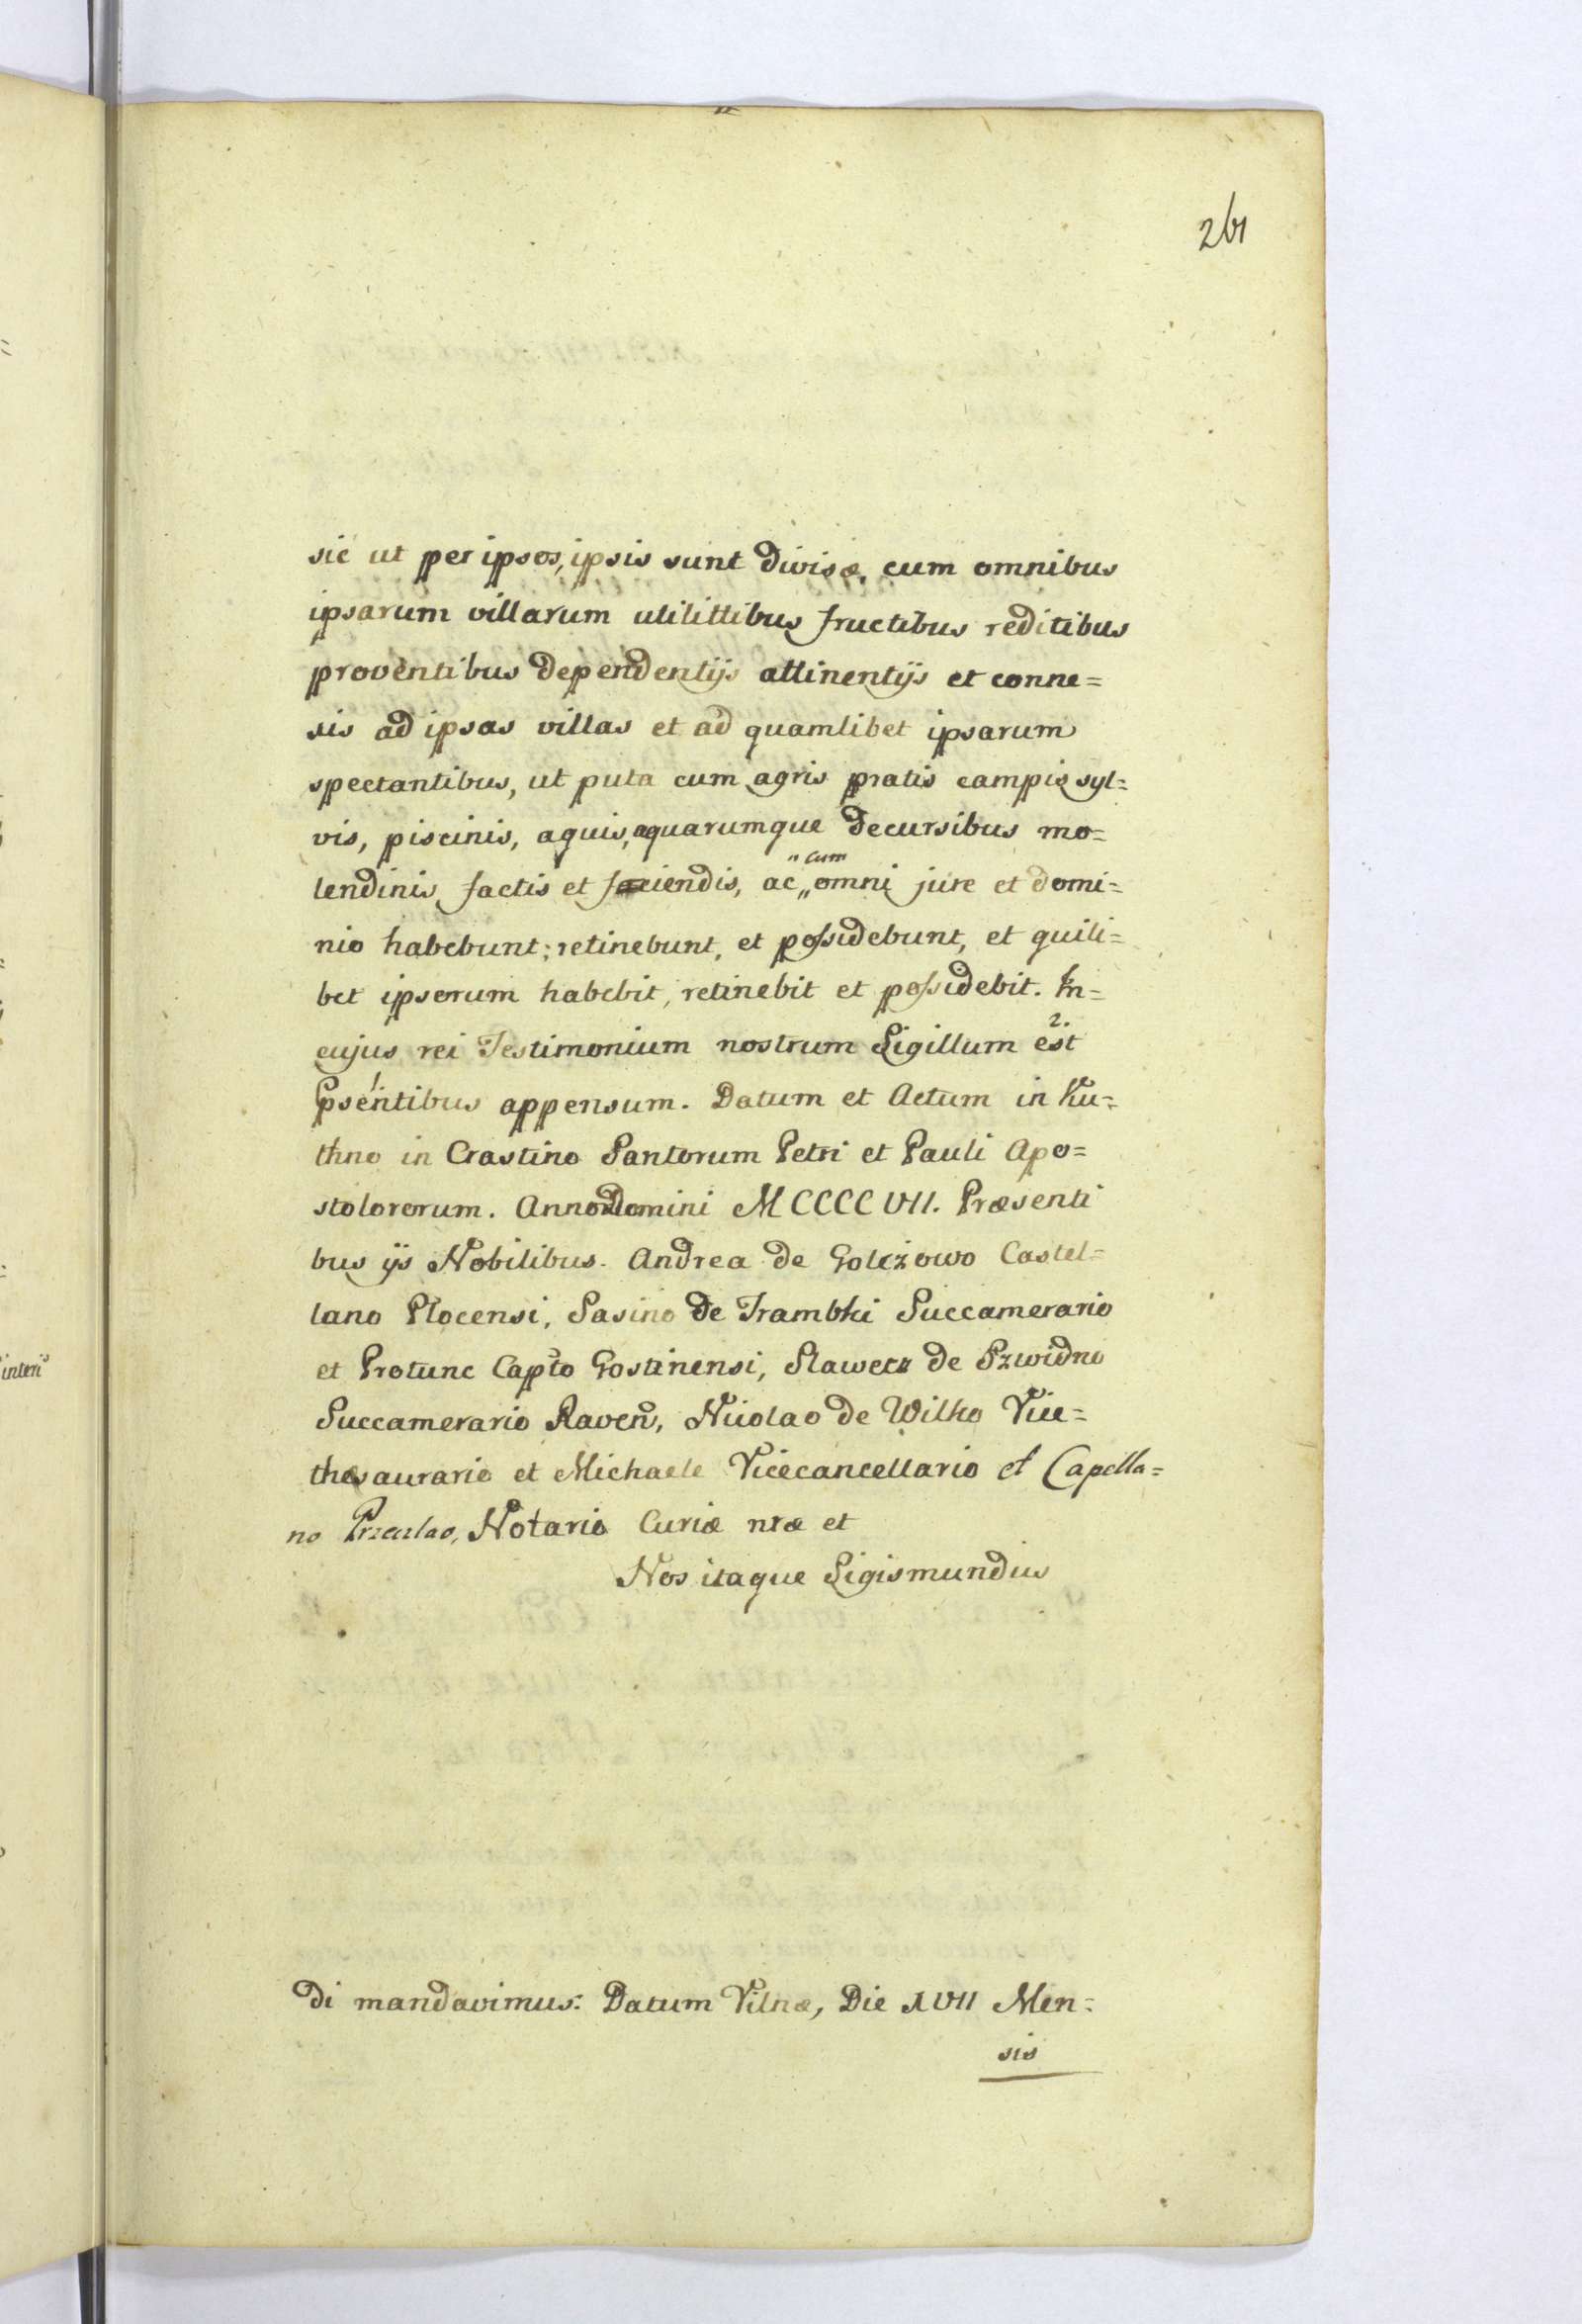 261
sic ut per ipsos, ipsis sunt divisæ, cum omnibus
ipsarum villarum utilittibus fructibus reditibus
proventibus dependentijs attinentijs et conne=
sis ad ipsas villas et ad quamlibet ipsarum
spectantibus, ut puta cum agris pratis campis syl=
vis, piscinis, aquis, aquarumque decursibus mo=
" cum
lendinis factis et faciendis, ac „ omni jure et domi=
nio habebunt; retinebunt, et possidebunt, et quili=
bet ipserum habebit, retinebit et possidebit. In=
cujus rei Testimonium nostrum Sigillum 2. est
1. psentibus appensum. Datum et Actum in Ku=
thno in Crastino Santorum Petri et Pauli Apo=
stolorerum. Anno Domini MCCCCVII. Præsenti
bus ijs Nobilibus. Andrea de Golczowo Castel=
lano Plocensi, Sasino de Trambki Succamerario
et Protunc Capto Gostinensi, Slawecz de Szwidno
Succamerario Raven, Nicolao de Wilko Vice=
thesaurario et Michaele Vicecancellario et Capella=
no Notario Curiæ nræ et
Nos itaque Sigismundus
di mandavimus. Datum Vilnæ, Die XVII Men=
sis
interi